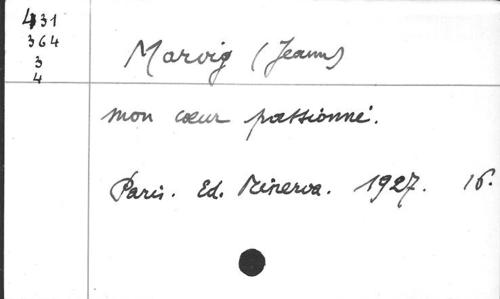 431
364
3
4
Marvig (Jeanne)
mon cœur passionné.
Paris. Ed. Minerva. 1927. 16.